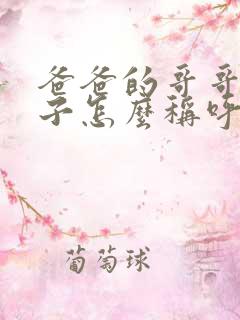 爸爸的哥哥
子怎麼稱呼
葡萄球